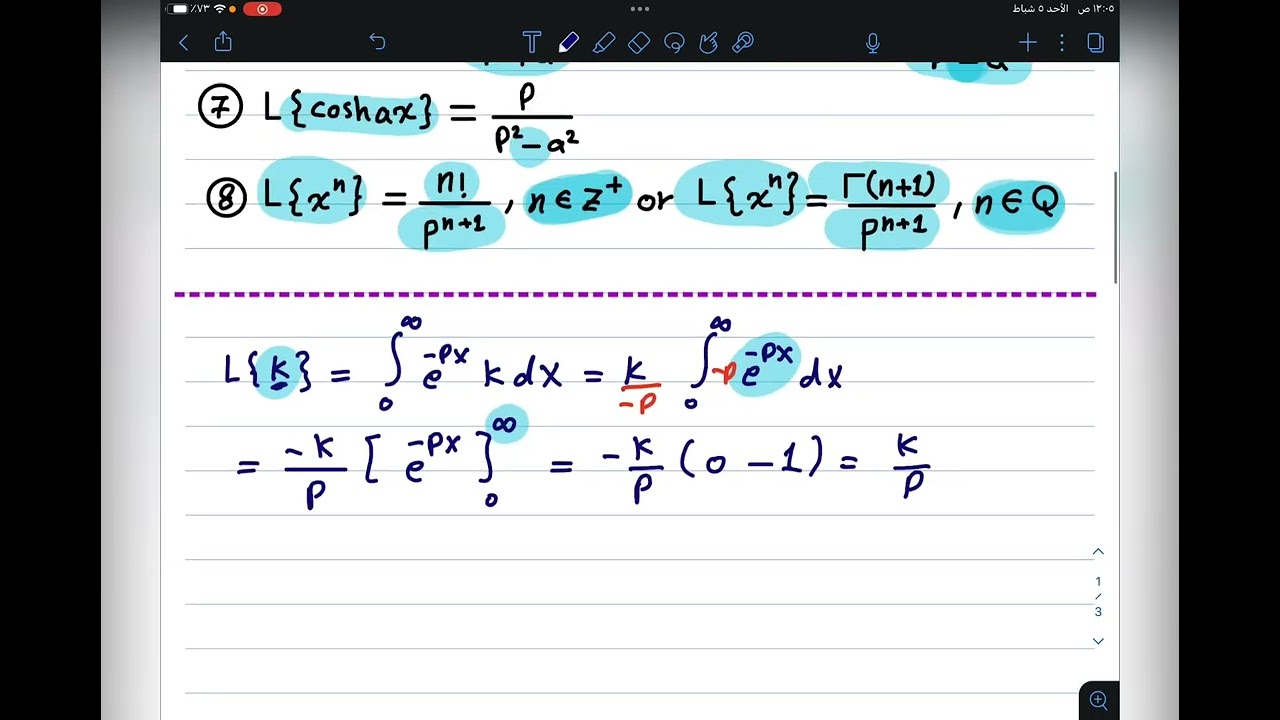 ٪٧٣ ١٢:٠٥ ص الأحد ٥ شباط
⑦ L{coshax} = P/(P² − a²)
⑧ L{xⁿ} = n!/Pⁿ⁺¹ , n ∈ Z⁺ or L{xⁿ} = Γ(n+1)/Pⁿ⁺¹ , n ∈ Q
L{k} = ∫₀^∞ e^(-Px) k dx = k/-P ∫₀^∞ -P e^(-Px) dx
= -k/P [ e^(-Px) ]₀^∞ = -k/P (0 − 1) = k/P
1
/
3